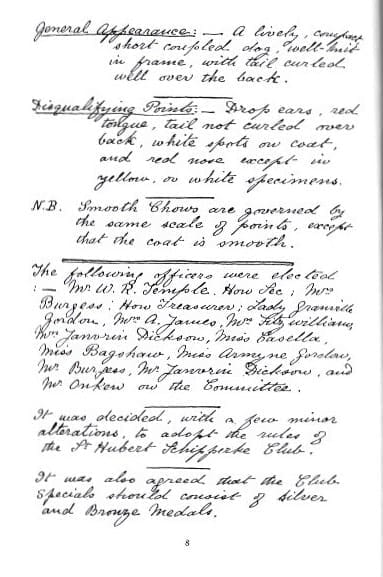 General Appearance:— A lively, compact
short coupled dog, well-knit
in frame, with tail curled
well over the back.
Disqualifying Points:— Drop ears, red
tongue, tail not curled over
back, white spots on coat,
and red nose except in
yellow, or white specimens.
N.B. Smooth Chows are governed by
the same scale of points, except
that the coat is smooth.
The following officers were elected
:— Mr W. R. Temple, Hon Sec; Mrs
Burgess; Hon Treasurer; Lady Granville
Gordon, Mrs A. James, Mrs Fitzwilliams,
Mrs Janvrin Dickson, Miss Casella,
Miss Bagshaw, Miss Armyne Gorslow,
Mr Burgess, Mr Janvrin Dickson, and
Mr Onken on the Committee.
It was decided, with a few minor
alterations, to adopt the rules of
the St Hubert Schipperke Club.
It was also agreed that the Club
Specials should consist of Silver
and Bronze Medals.
8